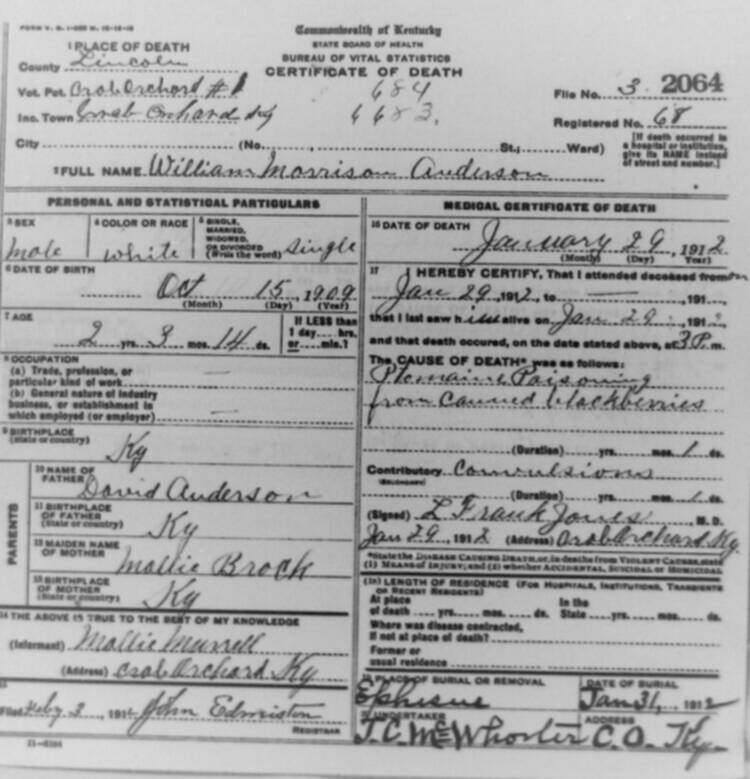 Commonwealth of Kentucky
STATE BOARD OF HEALTH
BUREAU OF VITAL STATISTICS
CERTIFICATE OF DEATH
1 PLACE OF DEATH
County Lincoln
Vot. Pct. Crab Orchard #1
Inc. Town Crab Orchard Ky
684
6683.
File No. 3 2064
Registered No. 68
[If death occurred in
a hospital or institution,
give its NAME instead
of street and number.]
City (No. , St.; Ward)
2 FULL NAME William Morrison Anderson
PERSONAL AND STATISTICAL PARTICULARS
3 SEX
male
4 COLOR OR RACE
white
5 SINGLE,
MARRIED,
WIDOWED,
OR DIVORCED
(Write the word) single
6 DATE OF BIRTH
Oct 15, 1909
(Month) (Day) (Year)
7 AGE
2 yrs. 3 mos. 14 ds.
If LESS than
1 day.... hrs.
or.... min.?
8 OCCUPATION
(a) Trade, profession, or
particular kind of work —
(b) General nature of industry
business, or establishment in
which employed (or employer) —
9 BIRTHPLACE
(State or country) Ky
PARENTS
10 NAME OF
FATHER David Anderson
11 BIRTHPLACE
OF FATHER
(State or country) Ky
12 MAIDEN NAME
OF MOTHER Mollie Brock
13 BIRTHPLACE
OF MOTHER
(State or country) Ky
14 THE ABOVE IS TRUE TO THE BEST OF MY KNOWLEDGE
(Informant) Mollie Murrell
(Address) Crab Orchard Ky
15
Filed Feby 3, 1912 John Edmiston
REGISTRAR
11-6184
MEDICAL CERTIFICATE OF DEATH
16 DATE OF DEATH
January 29 1912
(Month) (Day) (Year)
17 I HEREBY CERTIFY, That I attended deceased from on
Jan 29, 1912, to — , 191
that I last saw him alive on Jan 29, 191
and that death occured, on the date stated above, at 3 P. m.
The CAUSE OF DEATH* was as follows:
Ptomaine Poisoning
from canned blackberries
(Duration) yrs. mos. 1 ds.
Contributory Convulsions
(SECONDARY)
(Duration) yrs. mos. 1 ds.
(Signed) L Frank Jones M. D.
Jan 29, 1912 (Address) Crab Orchard Ky.
*State the DISEASE CAUSING DEATH, or, in deaths from VIOLENT CAUSES, state
(1) MEANS OF INJURY; and (2) whether ACCIDENTAL, SUICIDAL or HOMICIDAL
(18) LENGTH OF RESIDENCE (FOR HOSPITALS, INSTITUTIONS, TRANSIENTS
OR RECENT RESIDENTS)
At place
of death .... yrs. mos. ds.
In the
State .... yrs. mos. ds.
Where was disease contracted,
if not at place of death?
Former or
usual residence
19 PLACE OF BURIAL OR REMOVAL
Ephesus
DATE OF BURIAL
Jan 31, 1912
20 UNDERTAKER
T. C. McWhorter
ADDRESS
C. O. Ky.